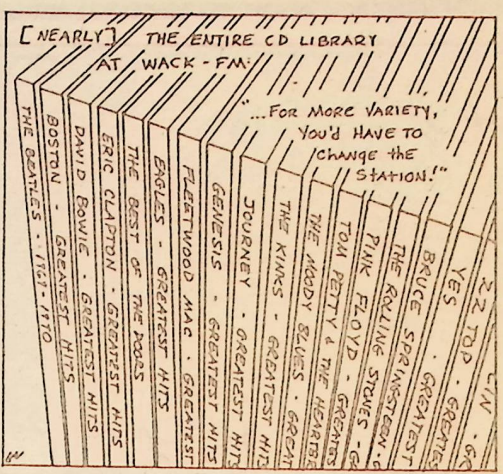 [NEARLY] THE ENTIRE CD LIBRARY
AT WACK-FM:
"...FOR MORE VARIETY,
YOU'D HAVE TO
CHANGE THE
STATION!"
THE BEATLES - 1967-1970
BOSTON - GREATEST HITS
DAVID BOWIE - GREATEST HITS
ERIC CLAPTON - GREATEST HITS
THE BEST OF THE DOORS
EAGLES - GREATEST HITS
FLEETWOOD MAC - GREATEST HITS
GENESIS - GREATEST HITS
JOURNEY - GREATEST HITS
THE KINKS - GREATEST
THE MOODY BLUES - GREAT
TOM PETTY & THE HEARTB
PINK FLOYD - GREATES
THE ROLLING STONES - G
BRUCE SPRINGSTEEN -
YES - GREATEST
ZZ TOP - GREATES
LIN - G